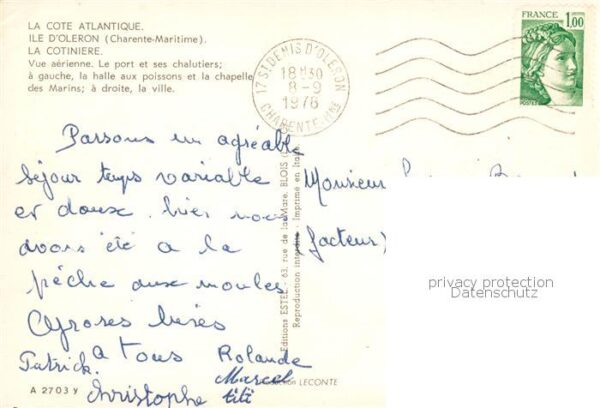 LA COTE ATLANTIQUE.
ILE D'OLERON (Charente-Maritime).
LA COTINIERE.
Vue aérienne. Le port et ses chalutiers;
à gauche, la halle aux poissons et la chapelle
des Marins; à droite, la ville.
17 ST DENIS D'OLERON
18H30
8-9
1978
CHARENTE-MME
FRANCE
1,00
POSTES
Passons un agréable
séjour temps variable
et doux. hier nous
avons été a la
pêche aux moules
Grosses bises
a Tous Rolande
Patrick Marcel
Christophe titi
Monsieur
facteur)
Editions ESTEL - 63, rue de la Mare, BLOIS
Reproduction interdite - Imprimé en Italie
LECONTE
A 2703 y
privacy protection
Datenschutz